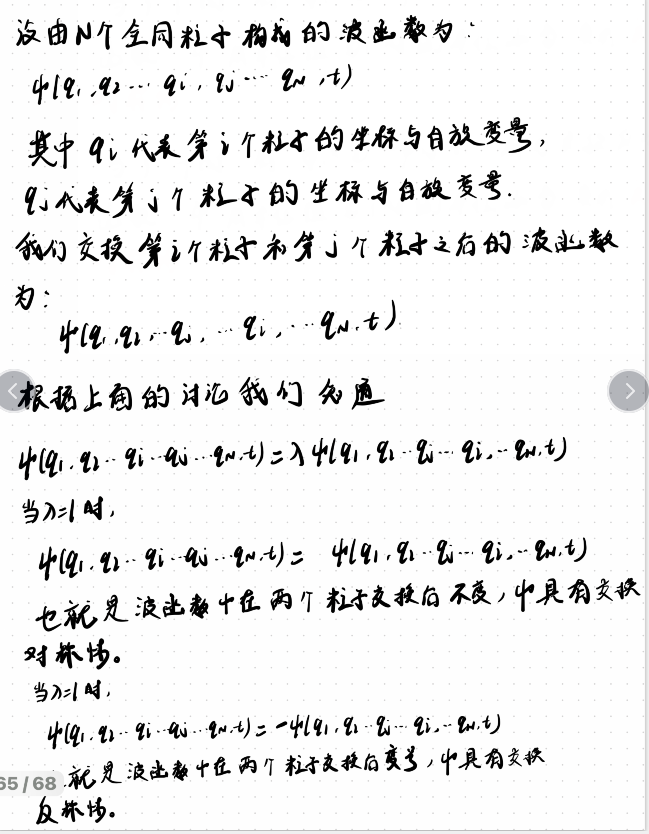 设由N个全同粒子构成的波函数为：
ψ(q₁,q₂…qᵢ,qⱼ…q_N,t)
其中qᵢ代表第i个粒子的坐标与自旋变量，
qⱼ代表第j个粒子的坐标与自旋变量.
我们交换第i个粒子和第j个粒子之后的波函数
为：
ψ(q₁,q₂…qⱼ,…qᵢ,…q_N,t)
根据上面的讨论我们知道
ψ(q₁,q₂…qᵢ…qⱼ…q_N,t)=λψ(q₁,q₂…qⱼ…qᵢ,…q_N,t)
当λ=1时，
ψ(q₁,q₂…qᵢ…qⱼ…q_N,t)= ψ(q₁,q₂…qⱼ…qᵢ,…q_N,t)
也就是波函数ψ在两个粒子交换后不变，ψ具有交换
对称性。
当λ=1时，
ψ(q₁,q₂…qᵢ…qⱼ…q_N,t)=-ψ(q₁,q₂…qⱼ…qᵢ,…q_N,t)
就是波函数ψ在两个粒子交换后变号，ψ具有交换
反称性。
65/68